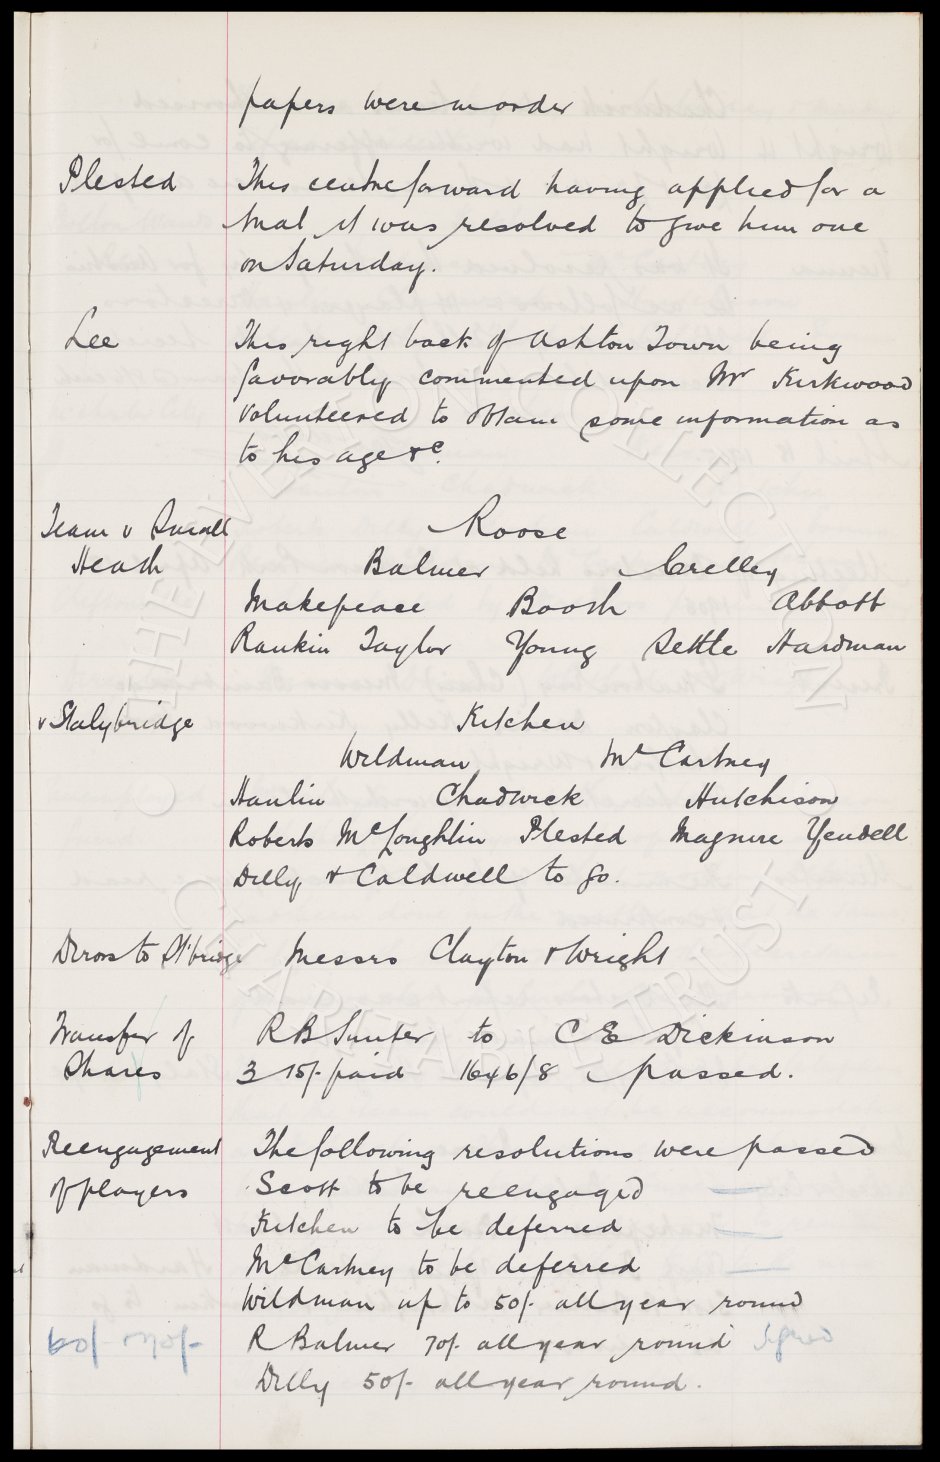 papers were in order
Plested This centre forward having applied for a
trial it was resolved to give him one
on Saturday.
Lee This right back of Ashton Town being
favorably commented upon Mr Kirkwood
volunteered to obtain some information as
to his age &c.
Team v Small Roose
Heath Balmer Crelley
Makepeace Booth Abbott
Rankin Taylor Young Settle Hardman
v Stalybridge Kitchen
Wildman McCartney
Hanlin Chadwick Hutchison
Roberts McLoughlin Plested Magnire Yendell
Dilly & Caldwell to go.
Dirors to St'bridge Messrs Clayton & Wright
Transfer of R B Sunter to C E Dickinson
Shares 3 15/- paid 1646/8 passed.
Reengagement The following resolutions were passed
of players Scott to be reengaged
Kitchen to be deferred
McCartney to be deferred
Wildman up to 50/- all year round
60/- 70/- R Balmer 70/- all year round Signed
Dilly 50/- all year round.
THE EVERTON COLLECTION
CHARITABLE TRUST